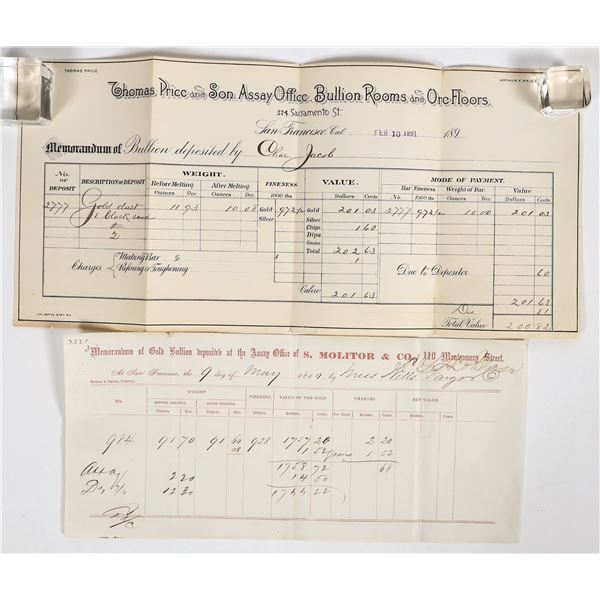 THOMAS PRICE ARTHUR F. PRICE
Thomas Price and Son Assay Office, Bullion Rooms and Ore Floors.
524 Sacramento St.
San Francisco, Cal. FEB 10 1891 189
Memorandum of Bullion deposited by Chas. Jacob
No. OF DEPOSIT DESCRIPTION OF DEPOSIT WEIGHT. FINENESS VALUE. MODE OF PAYMENT.
Before Melting After Melting 1000 ths Bar Fineness Weight of Bar. Value
Ounces Dec. Ounces Dec. Dollars Cents No. 1000 ths Ounces Dec. Dollars Cents
2777 Gold dust 11 93 10 08 972½ Gold 201 03 2777 972½ 10 00 201 03
& black sand Silver Silver
Chips 1 60
2 Dips
Grains
Total 202 63
Making Bar $ $ 1
Charges Refining or Toughening Due to Depositor 60
Value 201 63 201 63
Dis. 81
Total Value 200 82
Memorandum of Gold Bullion deposited at the Assay Office of S. MOLITOR & CO., 110 Montgomery Street.
At San Francisco, the 9 day of May 186 by Mess Wells Fargo & Co
No. WEIGHT. FINENESS. VALUE OF THE GOLD CHARGES NET VALUE.
BEFORE MELTING. AFTER MELTING.
Ounces. Dec. Ounces. Dec. Dollars. Cents. Per Cent. Dollars. Cents. Dollars. Cents.
984 91 70 91 60 928 1757 20 2 20
1 52 grains 1 52
Assay 1758 72 68
2 20 14 50
12 30 1744 22